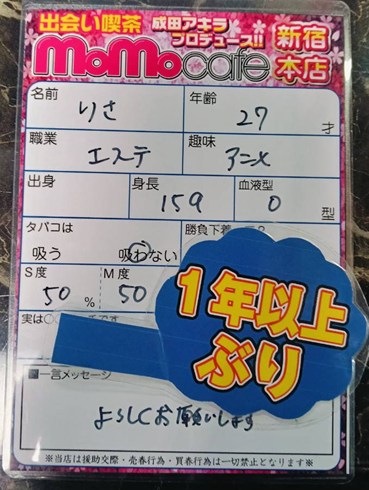 出会い喫茶 成田アキラ
プロデュース!!
MoMocafe
新宿
本店
名前 りさ
年齢 27 才
職業 エステ
趣味 アニメ
出身
身長 159
血液型 O 型
タバコは
吸う 吸わない
勝負下着
S度 50 %
M度 50
実は
1年以上
ぶり
■一言メッセージ
よろしくお願いします
※当店は援助交際・売春行為・買春行為は一切禁止となります※